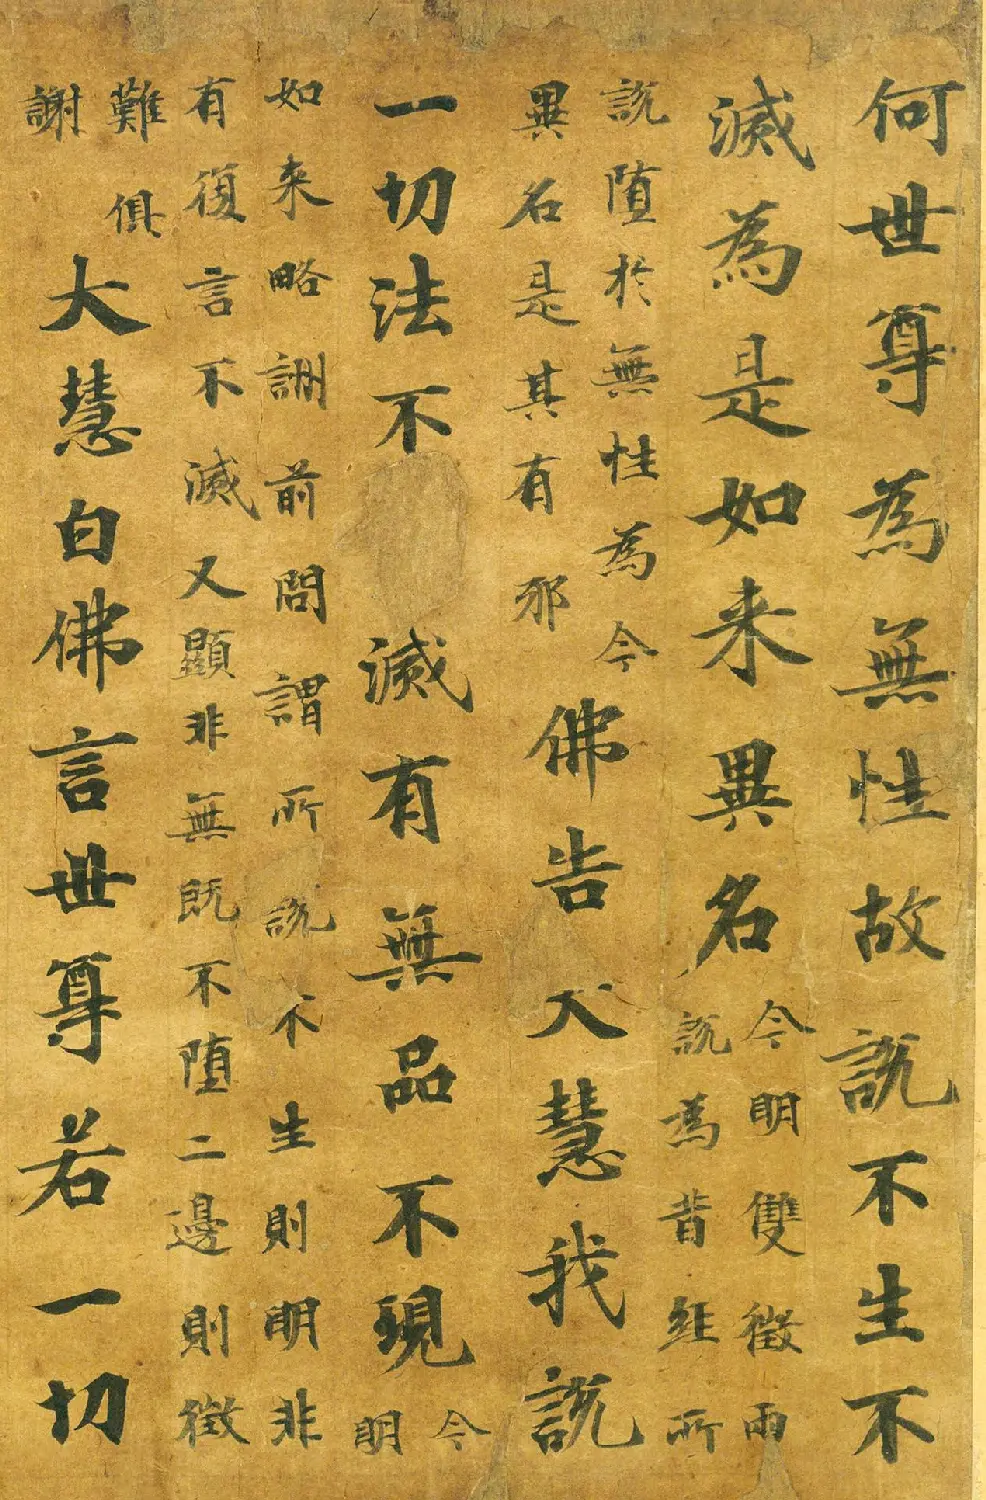 何世尊為無性故説不生不
滅為是如来異名
今明雙徵兩
説為昔經所
説堕於無性為今
異名是其有邪
佛告大慧我説
一切法不滅有無品不現
今
明
如来略詶前問謂所説不生則明非
有復言不滅又顯非無既不堕二邊則徵
難俱
謝
大慧白佛言世尊若一切